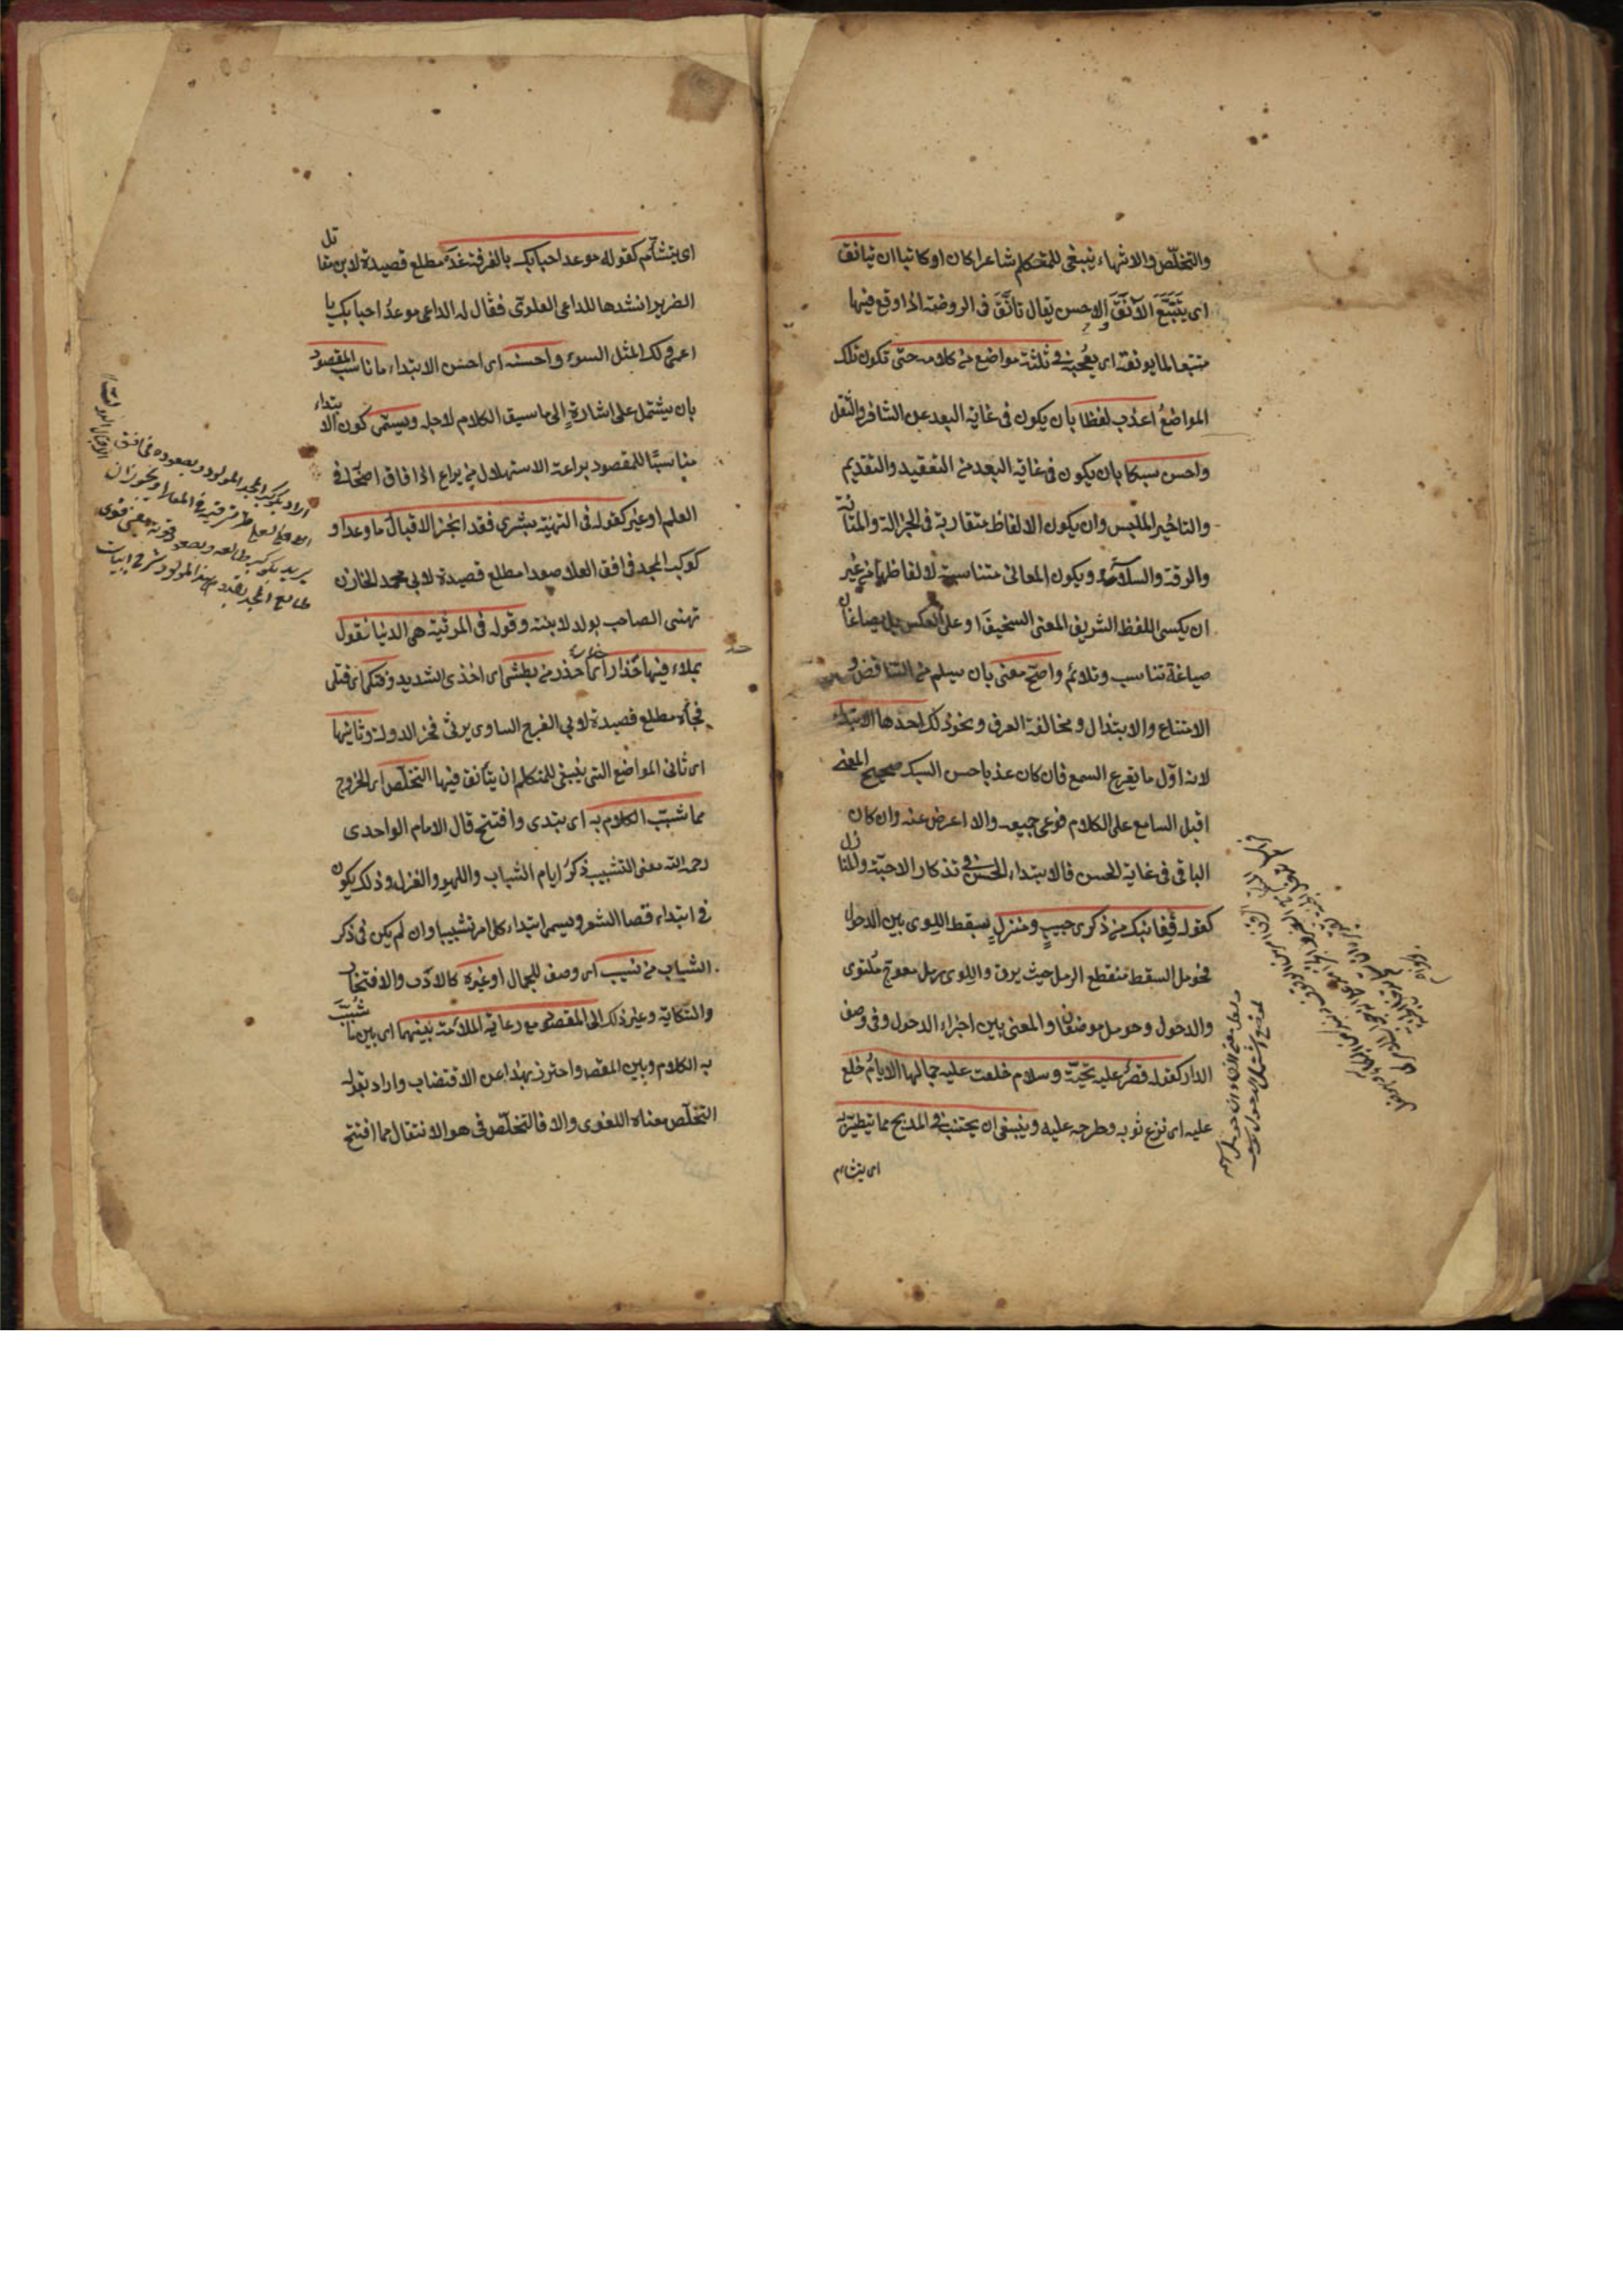 والتخلّص والانتهاء ينبغى للمتكلم شاعرا كان او كاتبا ان يتانق
اى يتتبع الآنق الاحسن يقال تأنق فى الروضة اذا وقع فيها
متتبعا لما يونقه اى يعجبه فى ثلثة مواضع من كلامه حتى تكون تلك
المواضع اعذب لفظا بان يكون فى غاية البعد عن التنافر والثقل
واحسن سبكا بان يكون فى غاية البعد من التعقيد والتقديم
والتاخير الملبس وان يكون الالفاظ متقاربة فى الجزالة والمتانة
والرقة والسلاسة ويكون المعانى متناسبة لالفاظها من غير
ان يكسى اللفظ الشريف المعنى السخيف او على العكس بل يصاغان
صياغة تناسب وتلائم واصح معنى بان يسلم من التناقض و
الامتناع والابتذال ومخالفة العرف ونحو ذلك احدها الابتداء
لانه اول ما يقرع السمع فان كان عذبا حسن السبك صحيح المعنى
اقبل السامع على الكلام فوعى جميعه والا اعرض عنه وان كان
الباقى فى غاية الحسن فالابتداء الحسن فى تذكار الاحبة والمنازل
كقوله قفا نبك من ذكرى حبيب ومنزل بسقط اللوى بين الدخول
فحومل السقط منقطع الرمل حيث يرق واللوى رمل معوج ملتوى
والدخول وحومل موضعان والمعنى بين اجزاء الدخول وفى وصف
الدار كقوله قصر عليه تحية وسلام خلعت عليه جمالها الايام خلع
عليه اى نزع ثوبه وطرحه عليه وينبغى ان يجتنب فى المديح مما يتطير به
اى يتشام
اى يتشأم كقوله موعد احبابك بالفرقة غد مطلع قصيدة لابن مقاتل
الضرير انشدها للداعى العلوى فقال له الداعى موعد احبابك يا
اعمى ولك المثل السوء واحسنه اى احسن الابتداء ما ناسب المقصود
بان يشتمل على اشارة الى ما سيق الكلام لاجله ويسمى كون الابتداء
مناسبا للمقصود براعة الاستهلال من برع اذا فاق اصحابه فى
العلم او غيره كقوله فى التهنية بشرى فقد انجز الاقبال ما وعدا و
كوكب المجد فى افق العلا صعدا مطلع قصيدة لابى محمد الخازن
تهنى الصاحب بولد لابنته وقوله فى المرثية هى الدنيا تقول
بملاء فيها حذار حذار اى احذر من بطشى اى اخذى الشديد وفتكى اى قتلى
فجأة مطلع قصيدة لابى الفرج الساوى يرثى فخر الدولة وثانيها
اى ثانى المواضع التى ينبغى للمتكلم ان يتأنق فيها التخلص اى الخروج
مما شبب الكلام به اى ابتدى وافتتح قال الامام الواحدى
رحمه الله معنى التشبيب ذكر ايام الشباب واللهو والغزل وذلك يكون
فى ابتداء قصائد الشعر ويسمى ابتداء كل امر تشبيبا وان لم يكن فى ذكر
الشباب من نسيب اى وصف للجمال او غيره كالادب والافتخار
والشكاية وغير ذلك الى المقصود مع رعاية الملائمة بينهما اى بين ما شبب
به الكلام وبين المقصود واحترز بهذا عن الاقتضاب واراد بقوله
التخلص معناه اللغوى والا فالتخلص فى هو الانتقال مما افتتح
اراد بكوكب المجد المولود وبصعوده فى افق